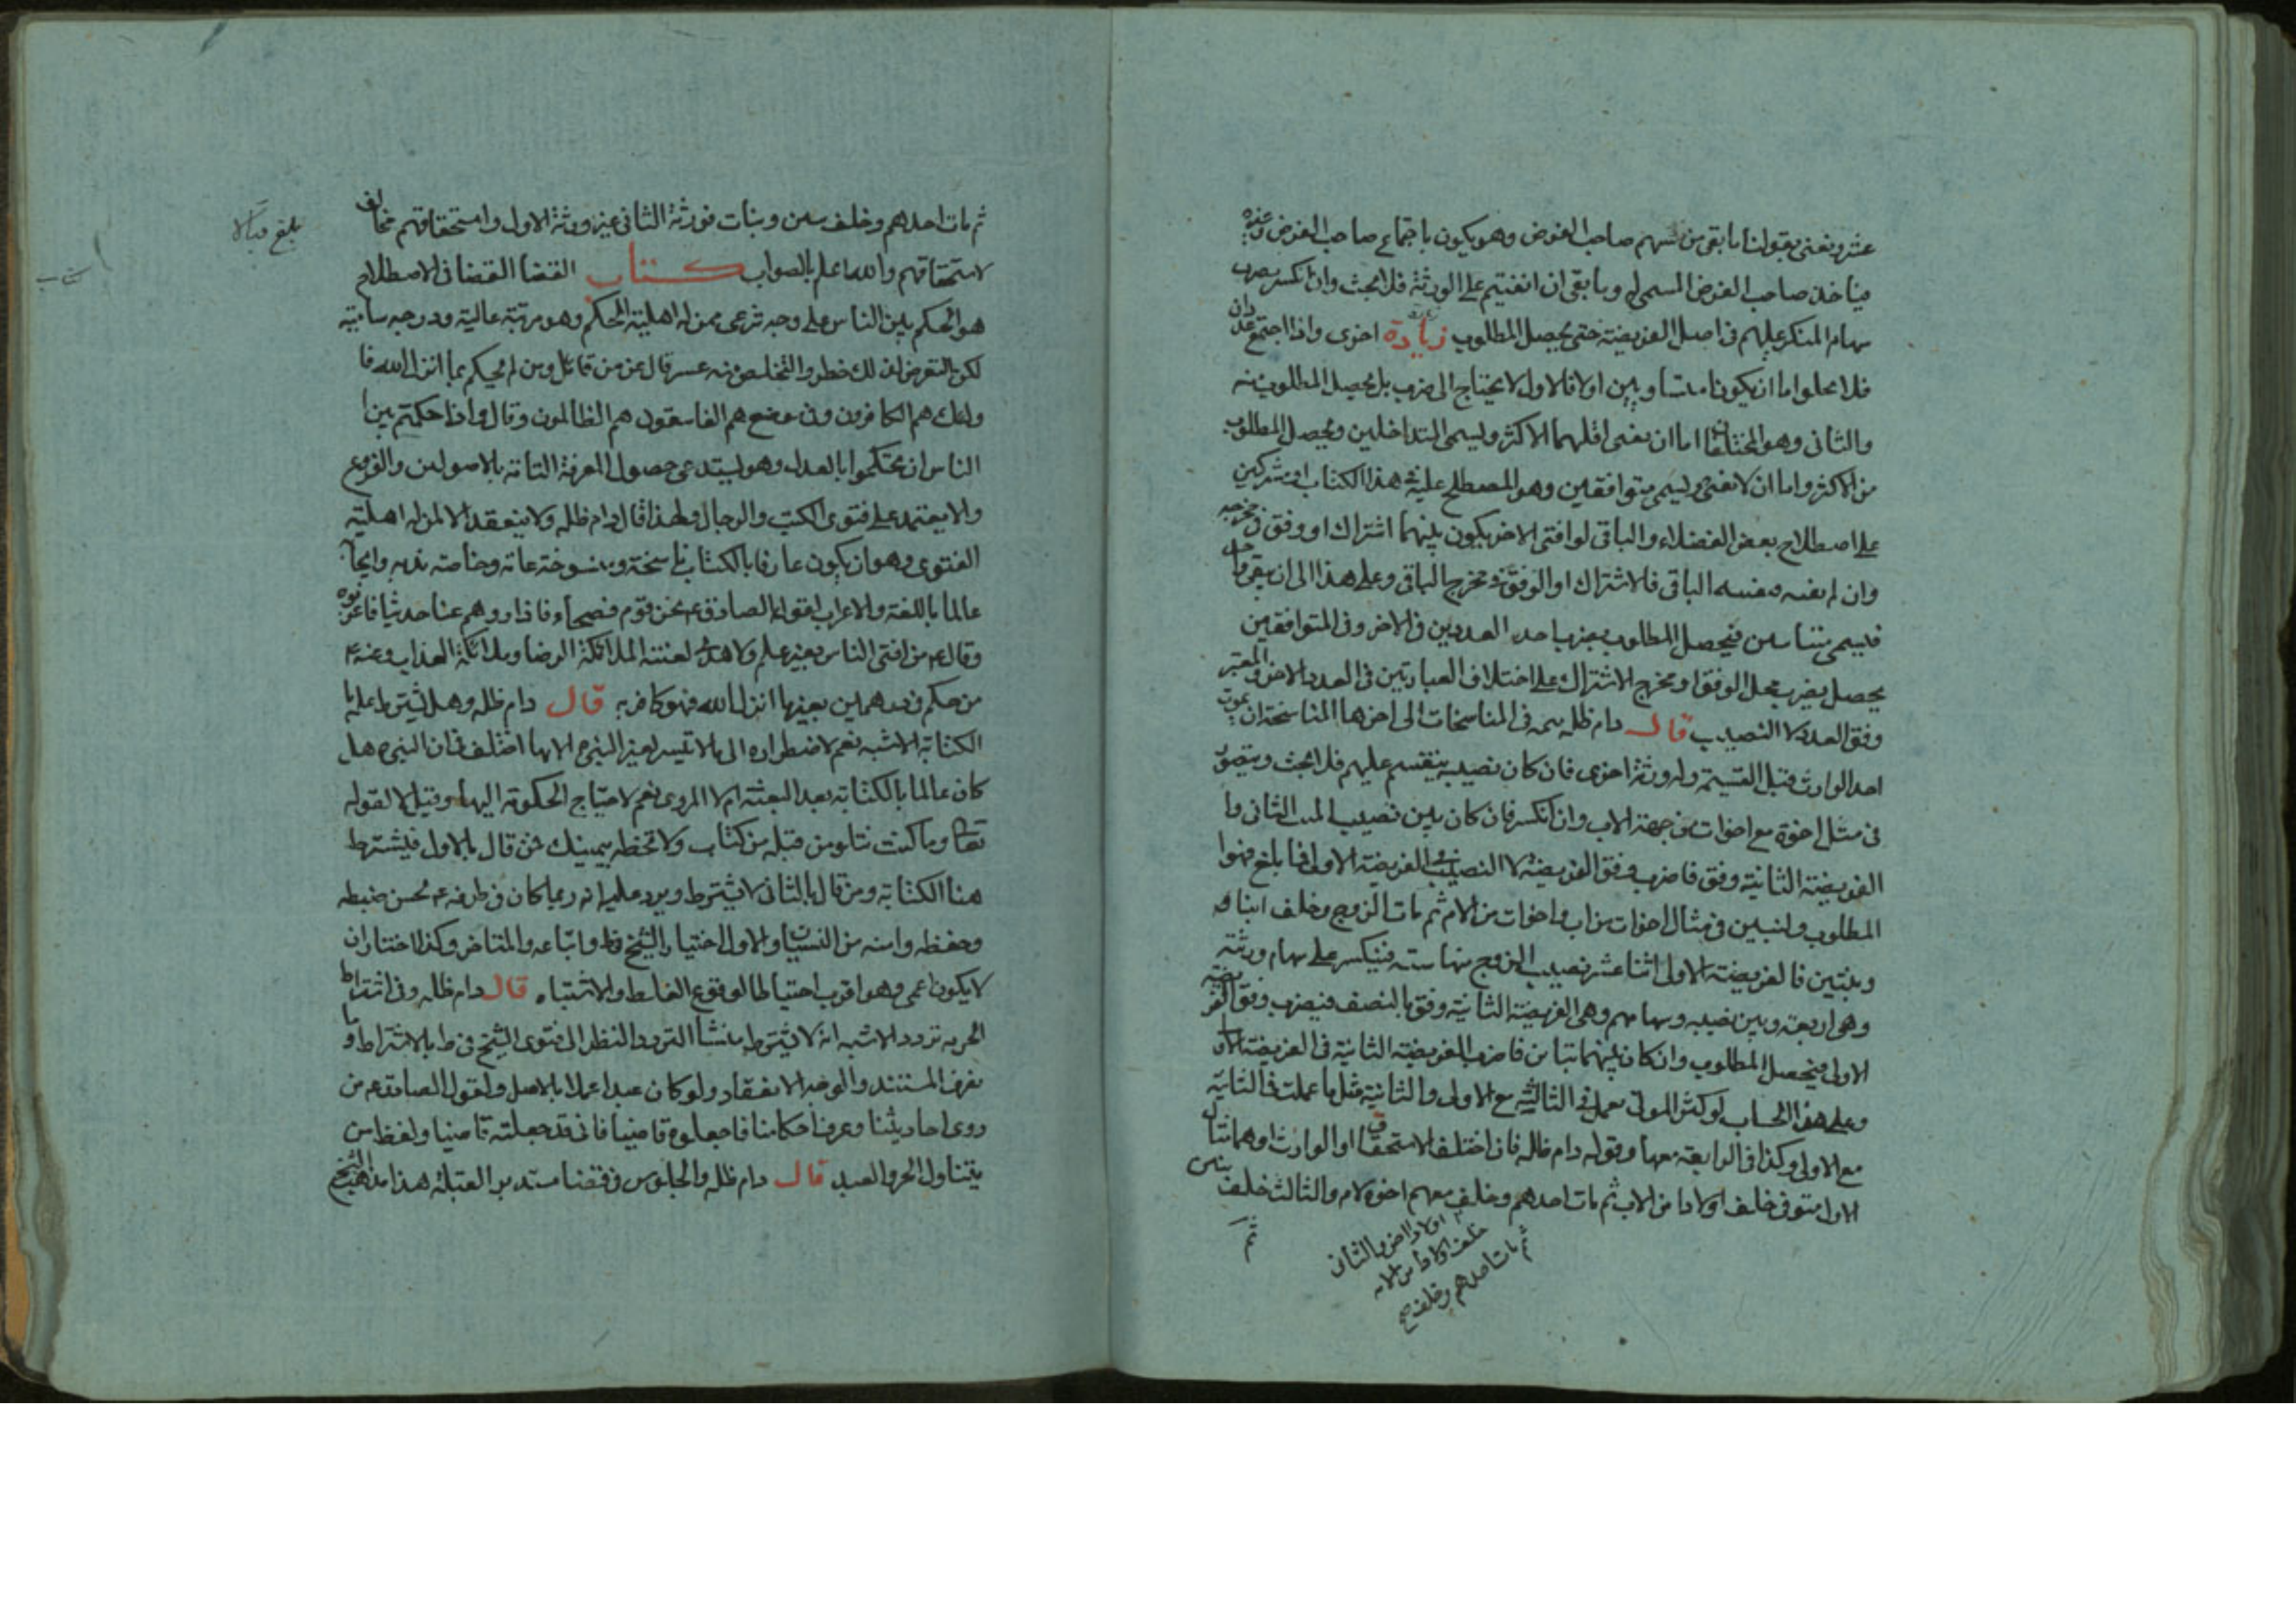 عشر ونعنى بقولنا ما بقى من سهم صاحب الفرض وهو يكون باجتماع صاحب الفرض وغيره
فياخذ صاحب الفرض المسمى له وما بقى ان انقسم على الورثة فلا بحث وان انكسر يضرب
سهام المنكسر عليهم فى اصل الفريضة حتى يحصل المطلوب زيادة اخرى واذا اجتمع عددان
فلا يخلوا اما ان يكونا متساويين او لا فالاول لا يحتاج الى ضرب بل يحصل المطلوب منه
والثانى وهو المختلفان اما ان يفنى اقلهما الاكثر ويسمى المتداخلين ويحصل المطلوب
من الاكثر واما ان لا يفنى ويسمى متوافقين وهو المصطلح عليه فى هذا الكتاب او مشتركين
على اصطلاح بعض الفضلاء والباقى لو افنى الاخر يكون بينهما اشتراك او وفق فى مخرجه
وان لم يفنه ويفنيه الباقى فالاشتراك او الوفق فى مخرج الباقى وعلى هذا الى ان يبقى واحد
فيسمى متباينين فيحصل المطلوب بضرب احد العددين فى الاخر وفى المتوافقين
يحصل بضرب محل الوفق او مخرج الاشتراك على اختلاف العبارتين فى العدد الاخر والمعتبر
وفق العدد لا النصيب قال دام ظله تتمه فى المناسخات الى اخرها المناسخة ان يموت
احد الوارث قبل القسمة وله ورثة اخرى فان كان نصيبه ينقسم عليهم فلا بحث ويتصور
فى مثل اخوة مع اخوات من جهة الاب وان انكسر فان كان بين نصيب الميت الثانى وا
الفريضة الثانية وفق فاضرب وفق الفريضة لا النصيب فى الفريضة الاولى فما بلغ فهو
المطلوب وليبين فى مثال اخوات من اب واخوات من الام ثم مات الزوج وخلف ابنا و
وبنتين فالفريضة الاولى اثنا عشر نصيب الزوج منها ستة فينكسر على سهام ورثته
وهو اربعة وبين نصيبه وسهامهم وهى الفريضة الثانية وفق بالنصف فيضرب وفق الفريضة
الاولى فيحصل المطلوب وان كان بينهما تباين فاضرب الفريضة الثانية فى الفريضة الاولى
وعلى هذا الحساب لو كثر الموتى تعمل فى الثالثة مع الاولى والثانية مثل ما عملت فى الثانية
مع الاولى وكذا فى الرابعة معها وقوله دام ظله فان اختلف الاستحقاق او الوارث او هما مثال
الاول متوفى خلف اولادا من الاب ثم مات احدهم وخلف معهم اخوة لام والثالث خلف
اولادا اخر والثانى
خلف اولادا من الام
ثم مات احدهم وخلف صح
ثم
بلغ قبالا
ثم مات احدهم وخلف بنين وبنات فورثة الثانى غير ورثة الاول واستحقاقهم مخالف
لاستحقاقهم والله اعلم بالصواب كتاب القضا القضا فى الاصطلاح
هو الحكم بين الناس على وجه شرعى ممن له اهلية الحكم وهو مرتبة عالية ودرجة سامية
لكن التعرض لذلك خطر والتخلص منه عسر قال عز من قائل ومن لم يحكم بما انزل الله فا
ولئك هم الكافرون وفى موضع هم الفاسقون هم الظالمون وقال واذا حكمتم بين ا
الناس ان تحكموا بالعدل وهو يستدعى حصول المعرفة التامة بالاصولين والفروع
والا يعتمد على فتوى الكتب والرجال ولهذا قال دام ظله ولا ينعقد الا لمن له اهلية
الفتوى وهو ان يكون عارفا بالكتاب ناسخه ومنسوخه عامه وخاصه ندبه وايجابه
عالما باللغة والاعراب لقول الصادق ع نحن قوم فصحاء فاذا رويتم عنا حديثا فاعربوه
وقال ع من افتى الناس بغير علم ولا هدى لعنته الملائكة الرضا وملائكة العذاب وعنه ع
من حكم فى درهمين بغير ما انزل الله فهو كافر به قال دام ظله وهل يشترط علمه با
الكتابة الاشبه نعم لاضطراره الى ما لا تيسر لغير النبى ع الا بها اختلف فى ان النبى ع هل
كان عالما بالكتابة بعد البعثة ام لا المروى نعم لاحتياج الحكومة اليها وقيل لا لقوله
تعالى وما كنت تتلو من قبله من كتاب ولا تخطه بيمينك فمن قال بالاول فيشترط
هنا الكتابة ومن قال بالثانى لا يشترط ويرد عليه انه ربما كان فى طرفه ع لحسن ضبطه
وحفظه وامنه من النسيان والاول اختيار الشيخ فى ط واتباعه والمتاخر وكذا اختار ان
لا يكون اعمى وهو اقرب احتياطا لوقوع الغلط والاشتباه قال دام ظله وفى اشتراط
الحرية تردد الاشبه انه لا يشترط منشأ التردد النظر الى فتوى الشيخ فى ط بالاشتراط و
نعرف المستند والوجه الانعقاد ولو كان عبدا عملا بالاصل ولقول الصادق ع من
روى احاديثنا وعرف احكامنا فاجعلوه قاضيا فانى قد جعلته قاضيا ولفظ من
يتناول الحر والعبد قال دام ظله والجلوس فى قضا مستدبر القبلة هذا مذهب الشيخ